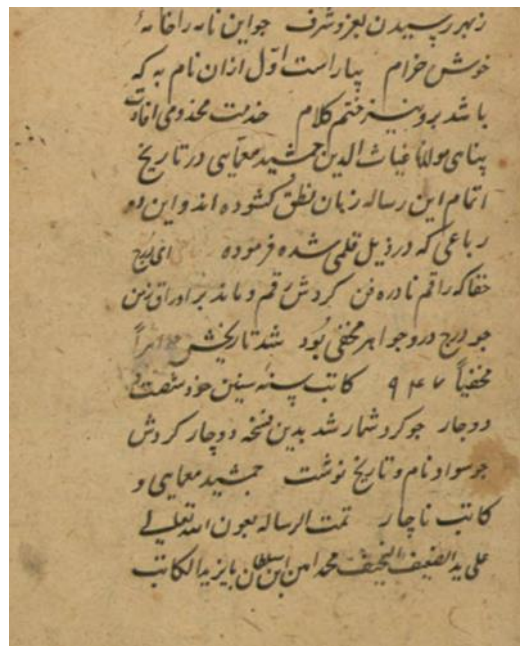 ز بهر رسیدن بعز و شرف جو این نامه را خامهٔ
خوش خرام بیاراست اوّل ازان نام به که
باشد برو نیز ختم کلام خدمت مخدومی افادت
پناهی مولانا غیاث الدین جمشید معمایی در تاریخ
اتمام این رساله زبان نطق کشوده اند و این دو
رباعی که در ذیل قلمی شده فرموده ای درج
خفا که راقم نادره فن کردش رقم و ماند بر اوراق زمن
جو درج در و جواهر مخفی بُود شد تاریخش
مخفیاً ۹۴۷ کاتب بسنه سنین خود شصت و
دو جار جو کرد شمار شد بدین نسخه دوجار کردش
جو سواد نام و تاریخ نوشت جمشید معمایی و
کاتب ناچار تمت الرساله بعون الله تعالی
علی ید الضعیف النحیف محمد امین ابن سلطان بایزید الکاتب